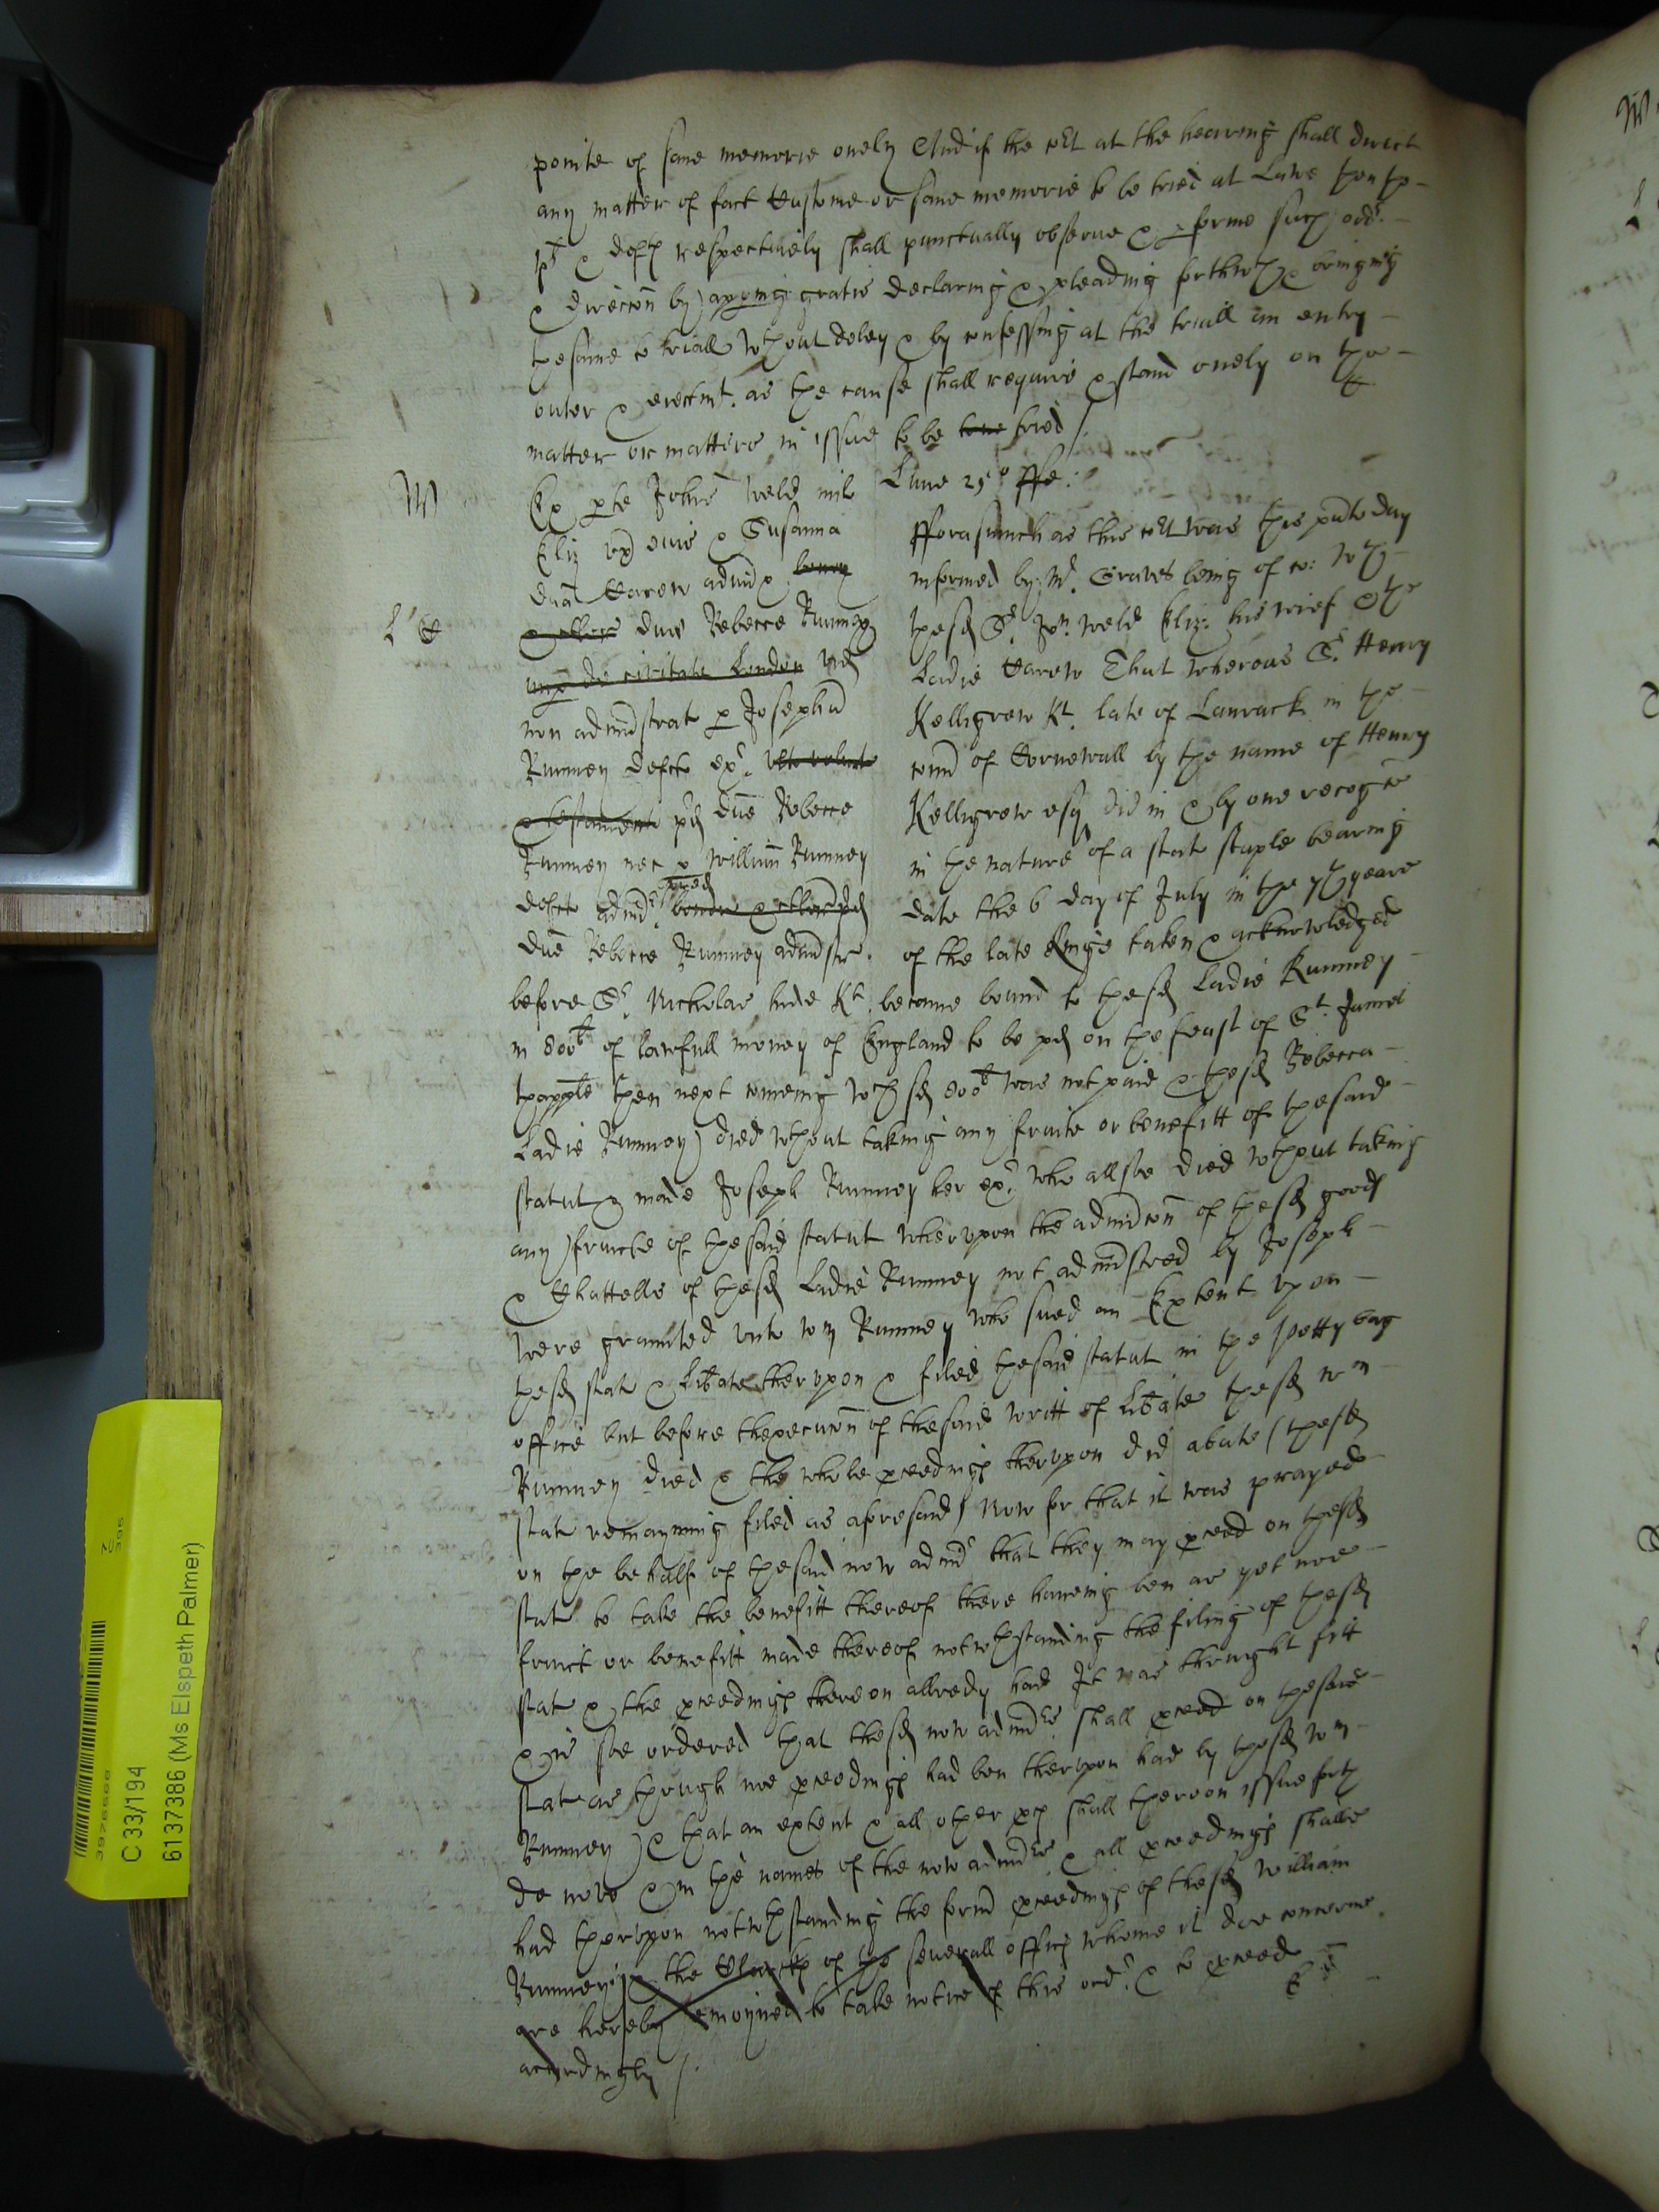 pointe of sane memorie onely And if the co:rt at the hearing shall direct
any matter of fact Custome or sane memorie to be tried at Lawe then the
pl:ts & def:ts respectively shall punctually observe & p:forme such ord:r
& direccon by apping gratis declaring & pleading forthwth & bringing
the same to triall wthout delay & by confessing at the triall an entry
outer & eiectmt. as the cause shall require & stand onely on the
matter or matters in issue to be tried /
W
L' &
Ex pte Johis Weld mil
Eliz ux eius & Susanna
dna Carew admx bonor
& cllor due Rebecce Rumney
nup de civitate London vid
non admistrat p Josephu
Rumney defct ex:r ult voluntat
& testament pd due Rebecce
Rumney nec & Willum Rumney
defct adm:r pred bonor & cllor pd
due Rebecce Rumney admstr.
Lune 25:o ffe:
fforasmuch as this co:rt was this pnte day
informed by M:r Graves being of co: wth
the sd S:r Jon. Weld Eliz: his wief & the
Ladie Carew That whereas S:r Henry
Kelligrew K:t late of Lanrack in the
coun of Cornewall by the name of Henry
Kelligrew esq did in & by one recogce
in the nature of a stat staple bearing
date the 6 day of July in the 7th yeare
of the late kinge taken & acknowledged
before S:r Nicholas hide K:t became bound to the sd Ladie Rumney
in 800:l of lawfull money of England to be pd on the feast of S:t James
thapple then next comeing wch sd 800:l was not paid & the sd Rebecca
Ladie Rumney died wthout taking any fruite or benefitt of the said
statut & made Joseph Rumney her ex:r who allsoe died wthout taking
any fruicte of the said statut wherupon the admicon of the sd goods
& Chattells of the sd Ladie Rumney not admistred by Joseph
were graunted unto Wm Rumney who sued an Extent upon
the sd stat & Libate therupon & filed the said statut in the petty bag
office but before thexecucon of the said writt of Libate the sd Wm
Rumney died & the whole pceedings therupon did abate (the sd
stat remayning filed as aforesaid) Now for that it was prayed
on the behalf of the said now adm:rs that they may pceed on the sd
stat to take the benefitt thereof there haveing ben as yet noe
fruict or benefitt made thereof notwthstanding the filing of the sd
stat & the pceedings thereon allredy had It was thought fitt
& is soe ordered that the sd now adm:rs shall pceed on the said
stat as though noe pceedings had ben therupon had by the sd Wm
Rumney & that an extent & all other pces shall thereon issue forth
de novo & in the names of the now adm:rs & all pceedings shalbe
had therupon notwthstanding the form:r pceedings of the sd William
Rumney & the Clarks of the severall offices whome it doe concerne
are hereby enioyned to take notice of this ord:r & to pceed
accordingly /.
3976668
C 33/194
61373386 (Ms Elspeth Palmer)